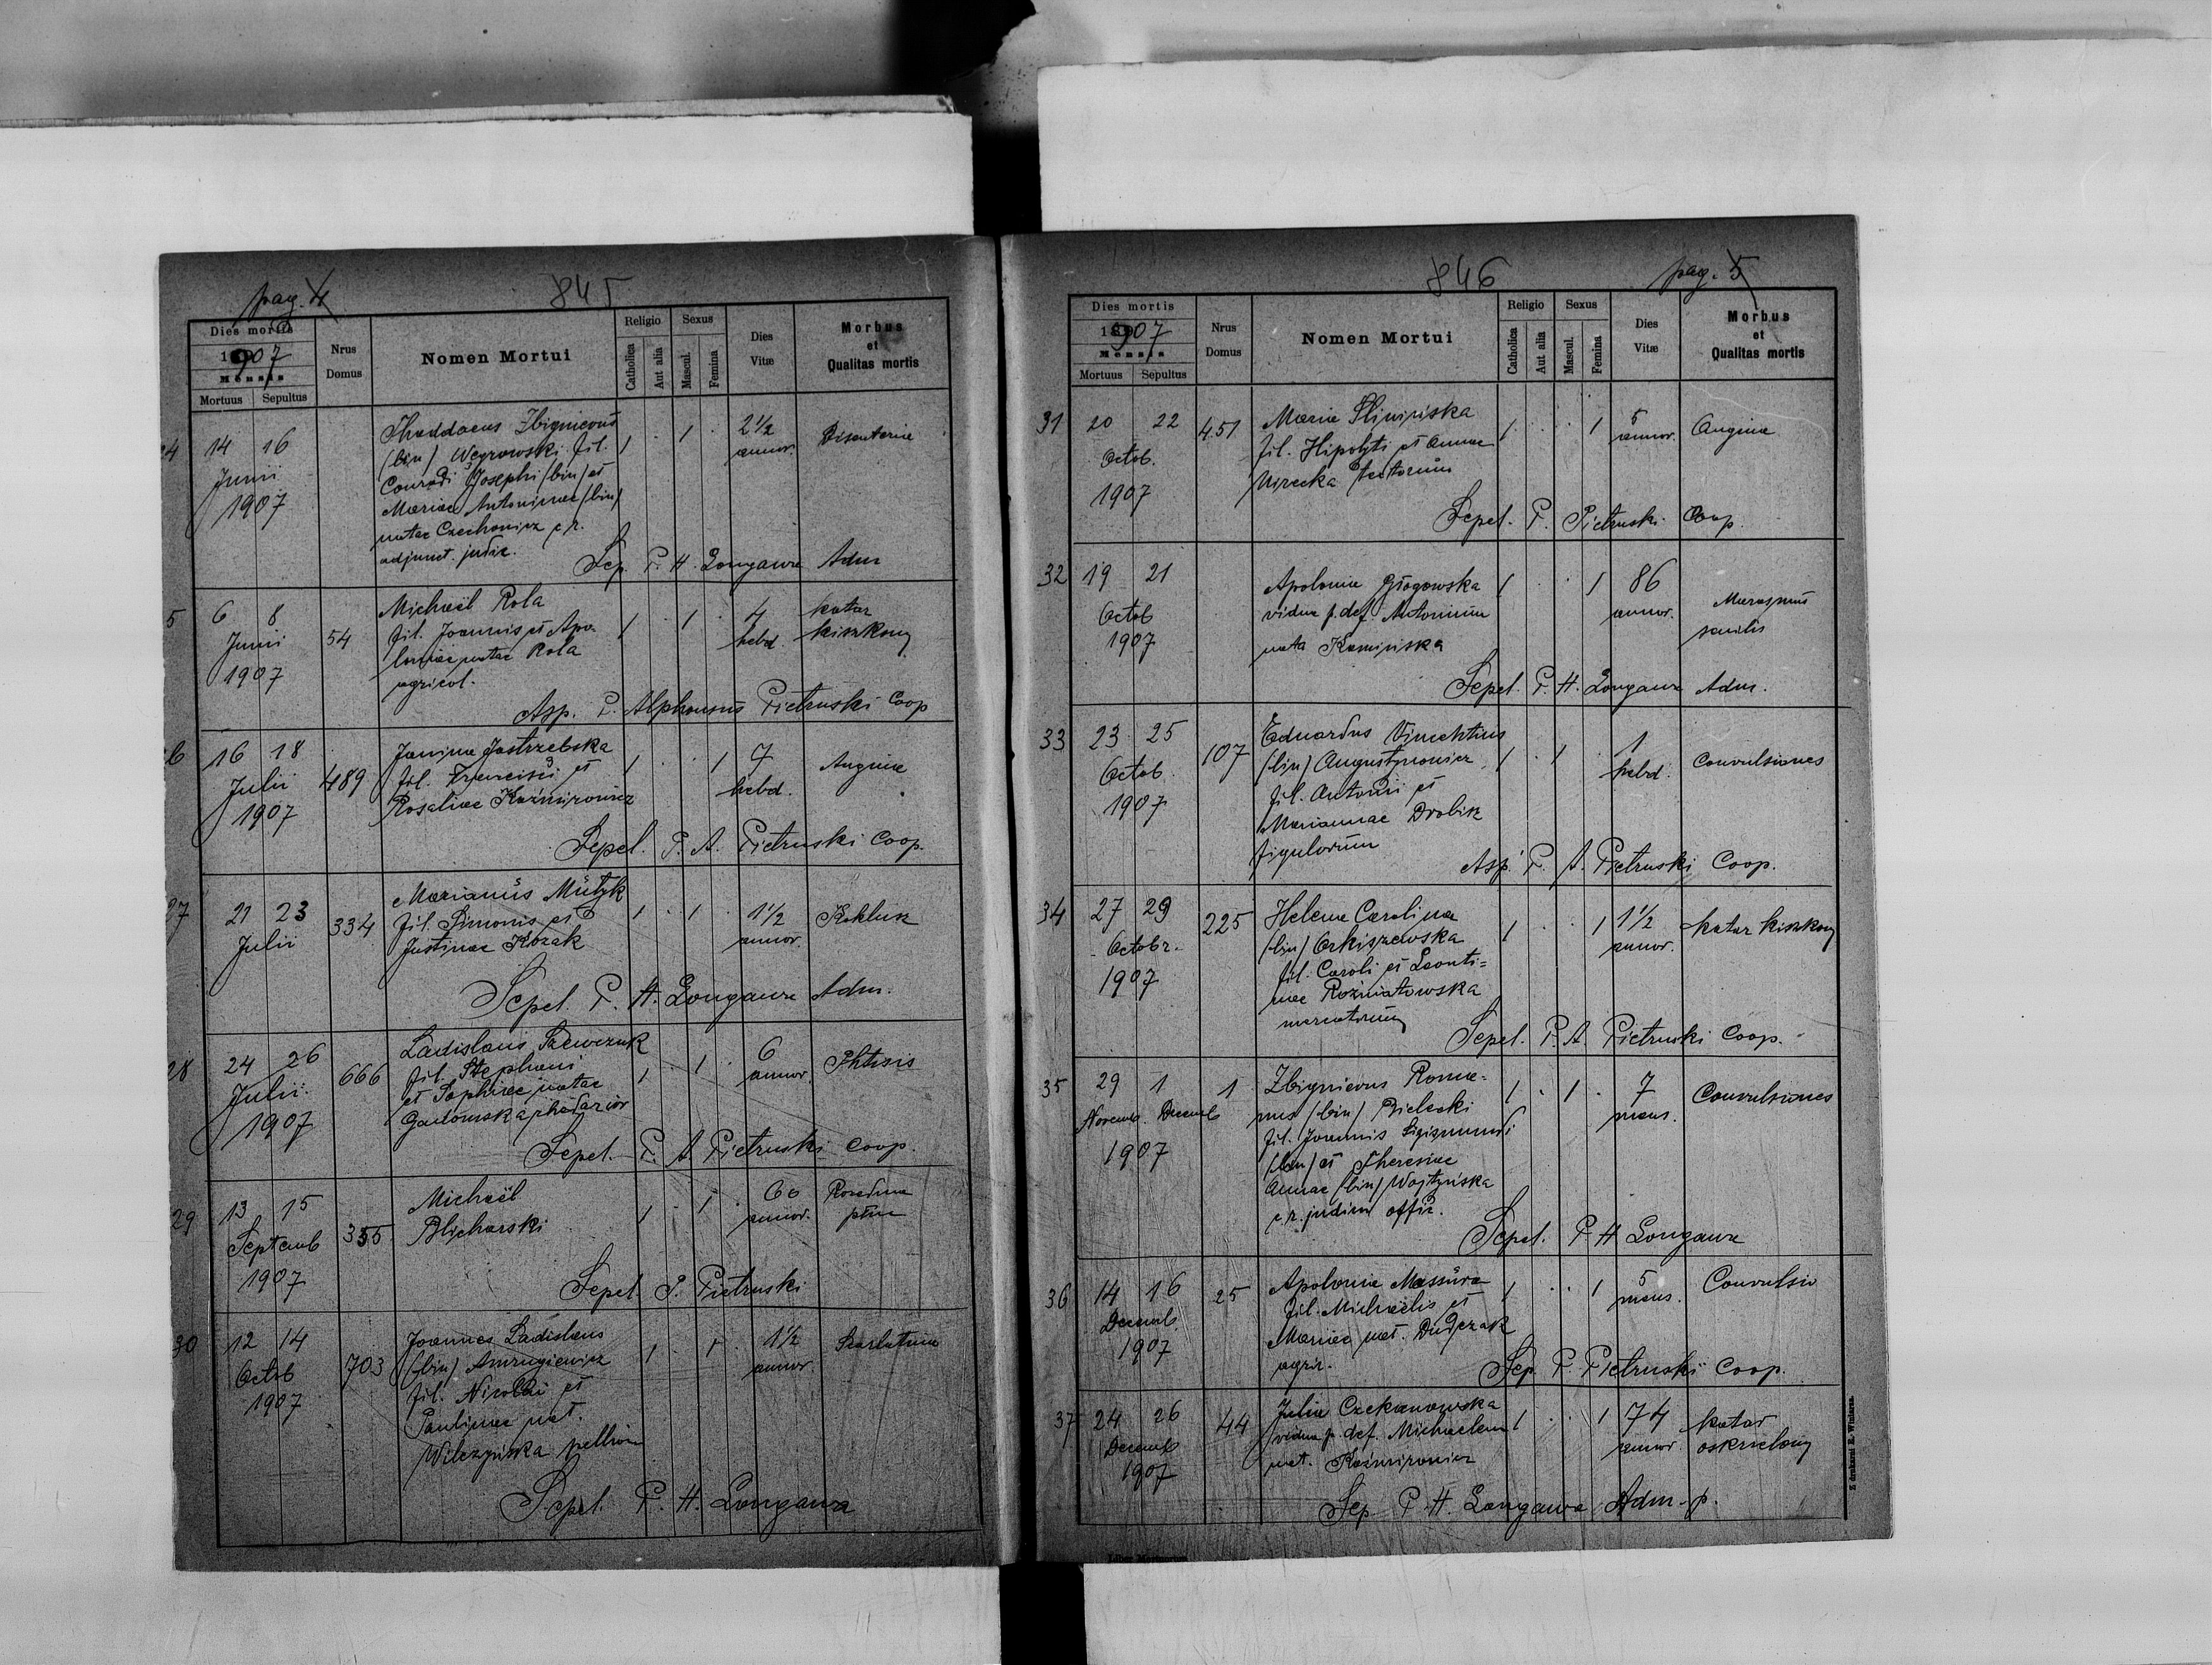 pag. 4
845
Dies mortis
1907
Mensis
Mortuus Sepultus
Nrus Domus
Nomen Mortui
Religio
Catholica
Aut alia
Sexus
Mascul.
Femina
Dies Vitæ
Morbus et Qualitas mortis
4 14 16 Thaddaeus Zbignieous 1 . 1 . 2½ Disenteria
Junii (bin) Węgrowski fil. annor.
1907 Conradi Josephi (bin) et
Mariae Antoninae (bin)
natae Czechowicz c. r.
adjunct. judic.
Sep. P. H. Longawa Adm
5 6 8 54 Michaël Rola 1 . 1 . 4 katar
Junii fil. Joannis et Apo- hebd. kiszkowy
1907 loniae natae Rola
agricol.
Asp. P. Alphonsus Pietruski Coop
6 16 18 489 Janina Jastrzebska 1 . . 1 7 Angina
Julii fil. Francisci et hebd.
1907 Rosaliae Kaźmirowicz
Sepel. P. A. Pietruski Coop.
27 21 23 334 Marianus Mütyk 1 . 1 . 1½ Kokluz
Julii fil. Simonis et annor.
Justinae Kozak
Sepel. P. H. Longawa Adm.
28 24 26 666 Ladislaus Szewczuk 1 . 1 . 6 Phtisis
Julii fil. Stephani annor.
1907 et Sophiae natae
Gadomska
Sepel. P. A Pietruski Coop.
29 13 15 355 Michaël 1 . 1 . 60
Septemb Blicharski annor.
1907
Sepel P. Pietruski
30 12 14 703 Joannes Ladislaus 1 . 1 . 1½ Scarlatina
Octob (bin) Amrugiewicz annor.
1907 fil. Nicolai et
Paulinae nat.
Wilczyńska pellion
Sepel. P. H. Longawa
846
pag. 5
Dies mortis
1907
Mensis
Mortuus Sepultus
Nrus Domus
Nomen Mortui
Religio
Catholica
Aut alia
Sexus
Mascul.
Femina
Dies Vitæ
Morbus et Qualitas mortis
31 20 22 451 Maria Śliwińska 1 . . 1 5 Angina
Octob. fil. Hipolyti et Annae annor.
1907 Mirecka
Sepel. P. Pietruski Coop.
32 19 21 Apolonia Głogowska 1 . . 1 86 Marasmus
Octob vidua p. def. Antonium annor. senilis
1907 nata Kamińska
Sepel. P. H. Longawa Adm.
33 23 25 107 Eduardus Vincentius 1 . 1 . 1 Convulsiones
Octob. (bin) Augustynowicz hebd.
1907 fil. Antonii et
Mariannae Drobik
figulorum
Asp. P. A. Pietruski Coop.
34 27 29 225 Helena Carolina 1 . . 1 1½ katar kiszkowy
Octobr. (bin) Orkiszewska annor.
1907 fil. Caroli et Leonti=
nae Rożniatowska
mercatorum
Sepel. P. A. Pietruski Coop.
35 29 1 1 Zbignieus Roma- 1 . 1 . 7 Convulsiones
Novemb. Decemb nus (bin) Bielecki mens.
1907 fil. Joannis Sigismundi
(bin) et Theresiae
Annae (bin) Wojtyńska
c. r. judicii offic.
Sepel. P. H Longawa
36 14 16 25 Apolonia Massüra 1 . . 1 5 Convulsio
Decemb fil. Michaëlis et mens.
1907 Mariae nat. Dudczak
agric.
Sep. P. Pietruski Coop.
37 24 26 44 Julia Czekanowska 1 . . 1 74 katar
Decemb vidua p. def. Michaelem annor. oskrzelowy
1907 nat. Kaźmirowicz
Sep P. H. Longawa Adm. p.
Z drukarni E. Winiarza.